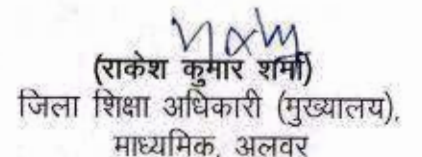 (राकेश कुमार शर्मा)
जिला शिक्षा अधिकारी (मुख्यालय),
माध्यमिक, अलवर